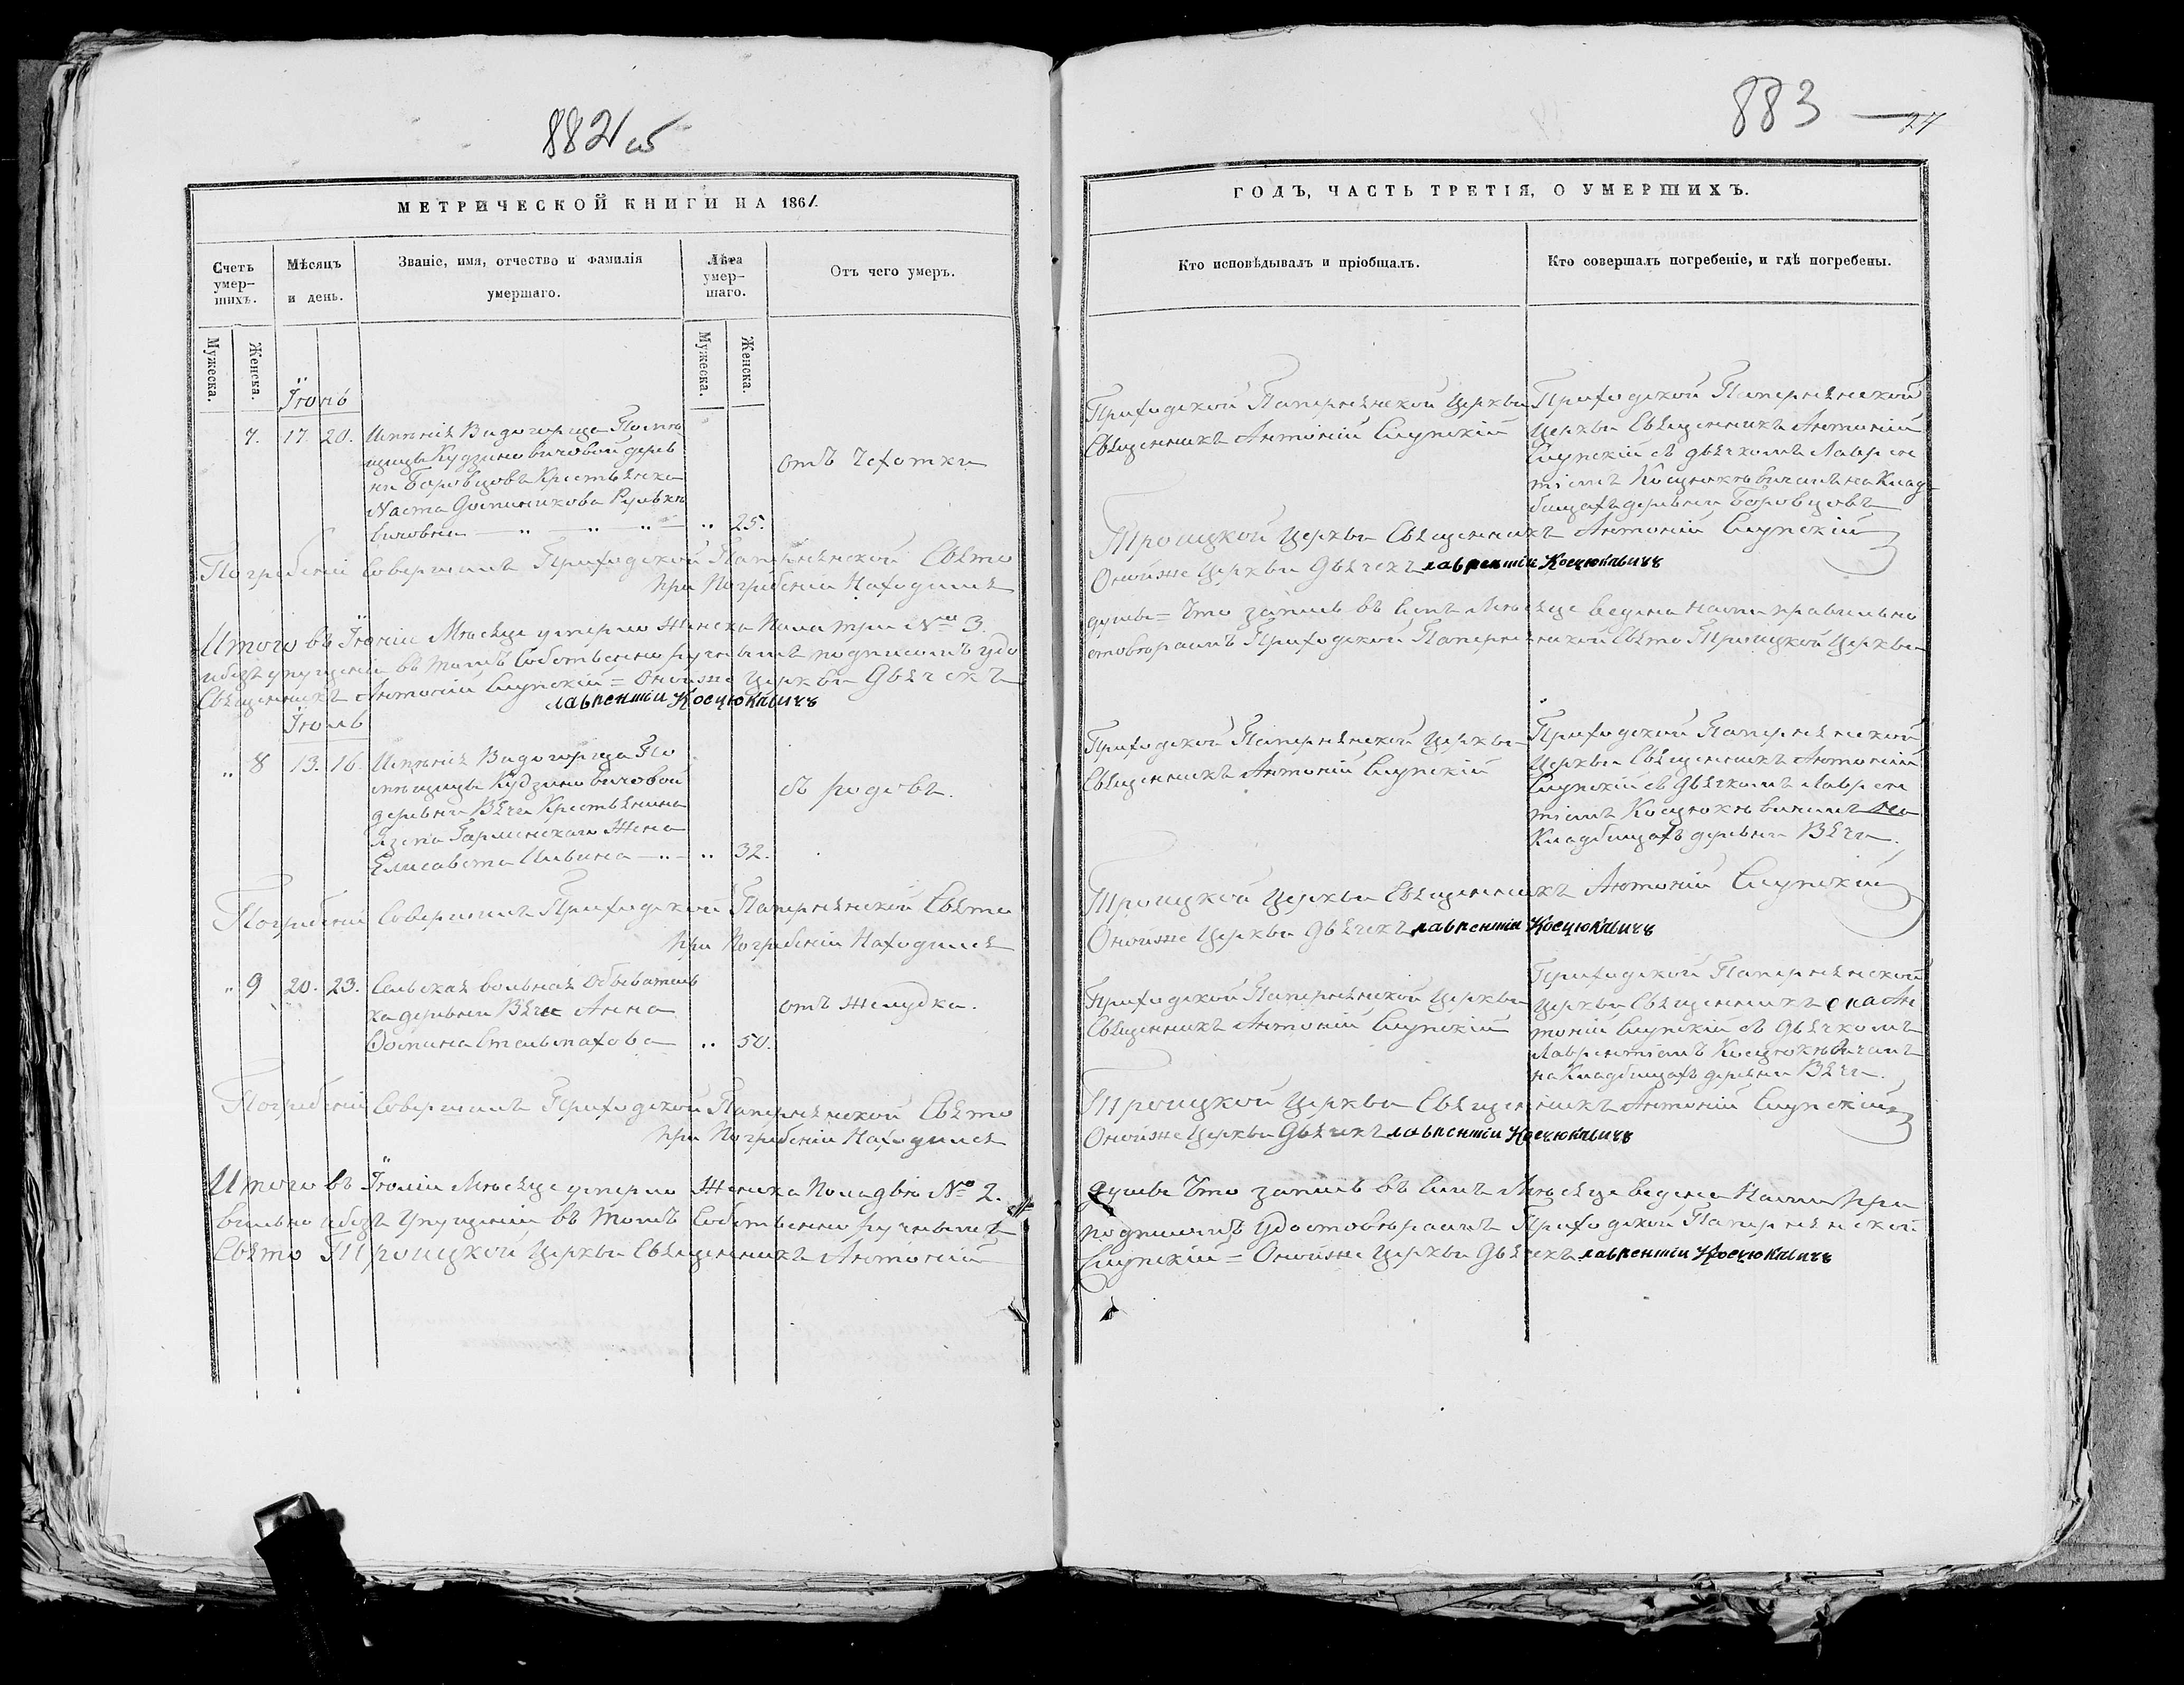 882 об
883 — 27
МЕТРИЧЕСКОЙ КНИГИ НА 1861.
ГОДЪ, ЧАСТЬ ТРЕТІЯ, О УМЕРШИХЪ.
Счетъ умер-
шихъ.
Мѣсяцъ
и день.
Званіе, имя, отчество и фамилія
умершаго.
Лѣта
умер-
шаго.
Отъ чего умеръ.
Кто исповѣдывалъ и пріобщалъ.
Кто совершалъ погребеніе, и гдѣ погребены.
Мужеска.
Женска.
Мужеска.
Женска.
Іюнь
7. 17. 20.
Имѣнія Видогоріща Помѣ
щицы Кудзиновичовой дерев
ни Боровцовъ Крестьянка
Наста
вичовна — 25.
отъ чехотки
Приходской Папернянской Церкви
Священникъ Антоній Слупскій
Приходской Папернянской
Церкви Священникъ Антоній
Слупскій съ дьячкомъ Лаврен
тіемъ Косцюкѣвичемъ на Клад-
бищахъ деревни Боровцовъ
Погребеніе Совершилъ Приходской Папернянской Свято
Троицкой Церкви Священникъ Антоній Слупскій
при Погребеніи Находился
Оной же Церкви Дьячекъ лаврентіи Косцюкѣвичъ
Итого въ Іюніи Мѣсяце умерло Женска Пола три № 3.
душъ = Что запись въ семъ Мѣсяце ведена нами правильно
и безъ упущеній въ томъ Собственноручнымъ подписомъ удо
стовѣраемъ Приходской Папернянской Свято Троицкой Церкви
Священникъ Антоній Слупскій = Оной же Церкви Дьячекъ
лаврентіи Косцюкѣвичъ
Іюль
„ 8 13. 16.
Имѣнія Видогоріща По
мѣщицы Кудзиновичовой
деревни Вяча Крестьянина
Гарменскаго Жена
Елисавета Ильина — „ 32.
съ родовъ.
Приходской Папернянской Церкви
Священникъ Антоній Слупскій
Приходской Папернянской
Церкви Священникъ Антоній
Слупскій съ Дьячкомъ Лаврен
тіемъ Косцюкѣвичемъ на
Кладбищахъ деревни Вяча.
Погребеніе Совершилъ Приходской Папернянской Свято
Троицкой Церкви Священникъ Антоній Слупскій
при Погребеніи Находился
Оной же Церкви Дьячекъ лаврентіи Косцюкѣвичъ
„ 9 20. 23.
Сельская вольная Обыватель
ка деревни Вяча Анна
Фомина Стельмахова — „ 50.
отъ желудка.
Приходской Папернянской Церкви
Священникъ Антоній Слупскій
Приходской Папернянской
Церкви Священникъ Ан
тоній Слупскій съ Дьячкомъ
Лаврентіемъ Косцюкѣвичемъ
на Кладбищахъ деревни Вяча.
Погребеніе Совершилъ Приходской Папернянской Свято
Троицкой Церкви Священникъ Антоній Слупскій
при Погребеніи Находился
Оной же Церкви Дьячекъ лаврентіи Косцюкѣвичъ
Итого въ Іюліи Мѣсяце умерло Женска Пола двѣ № 2.
душы Что запись въ семъ Мѣсяце ведена Нами пра
вильно и безъ Упущеній въ томъ Собственноручнымъ
подписомъ удостовѣраемъ Приходской Папернянской
Свято Троицкой Церкви Священникъ Антоній
Слупскій = Оной же Церкви Дьячекъ лаврентіи Косцюкѣвичъ